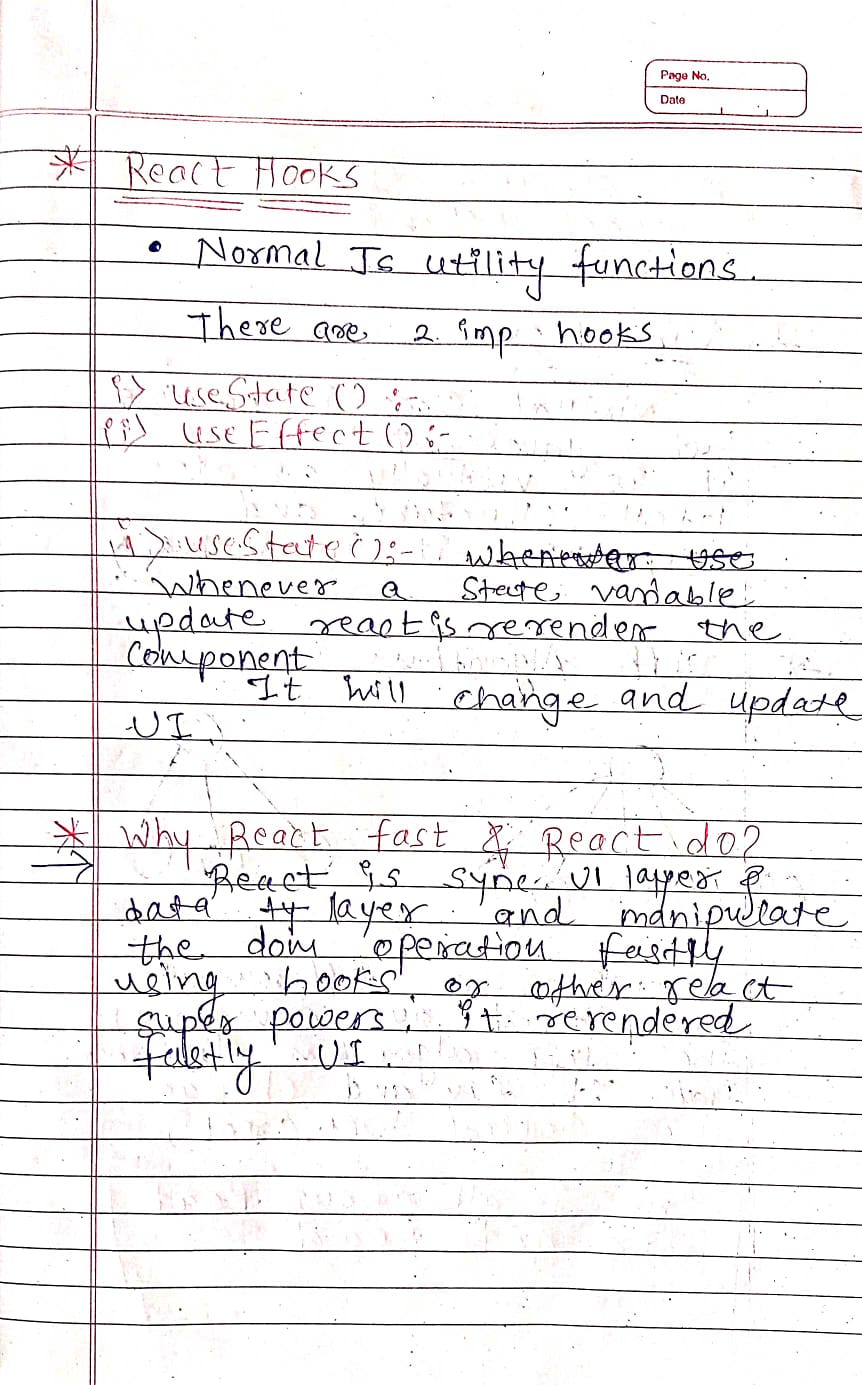 Page No.
Date
* React Hooks
• Normal Js utility functions.
There are 2 imp hooks
i) useState () :-
ii) useEffect () :-
i) useState () :- ~~whenever use~~
Whenever a State variable
update react is rerender the
Component
It will change and update
UI.
* Why React fast & React do?
→ React is sync UI layer &
data layer and manipulate
the dom operation fastly
using hooks or other react
super powers, it rerendered
fastly UI.